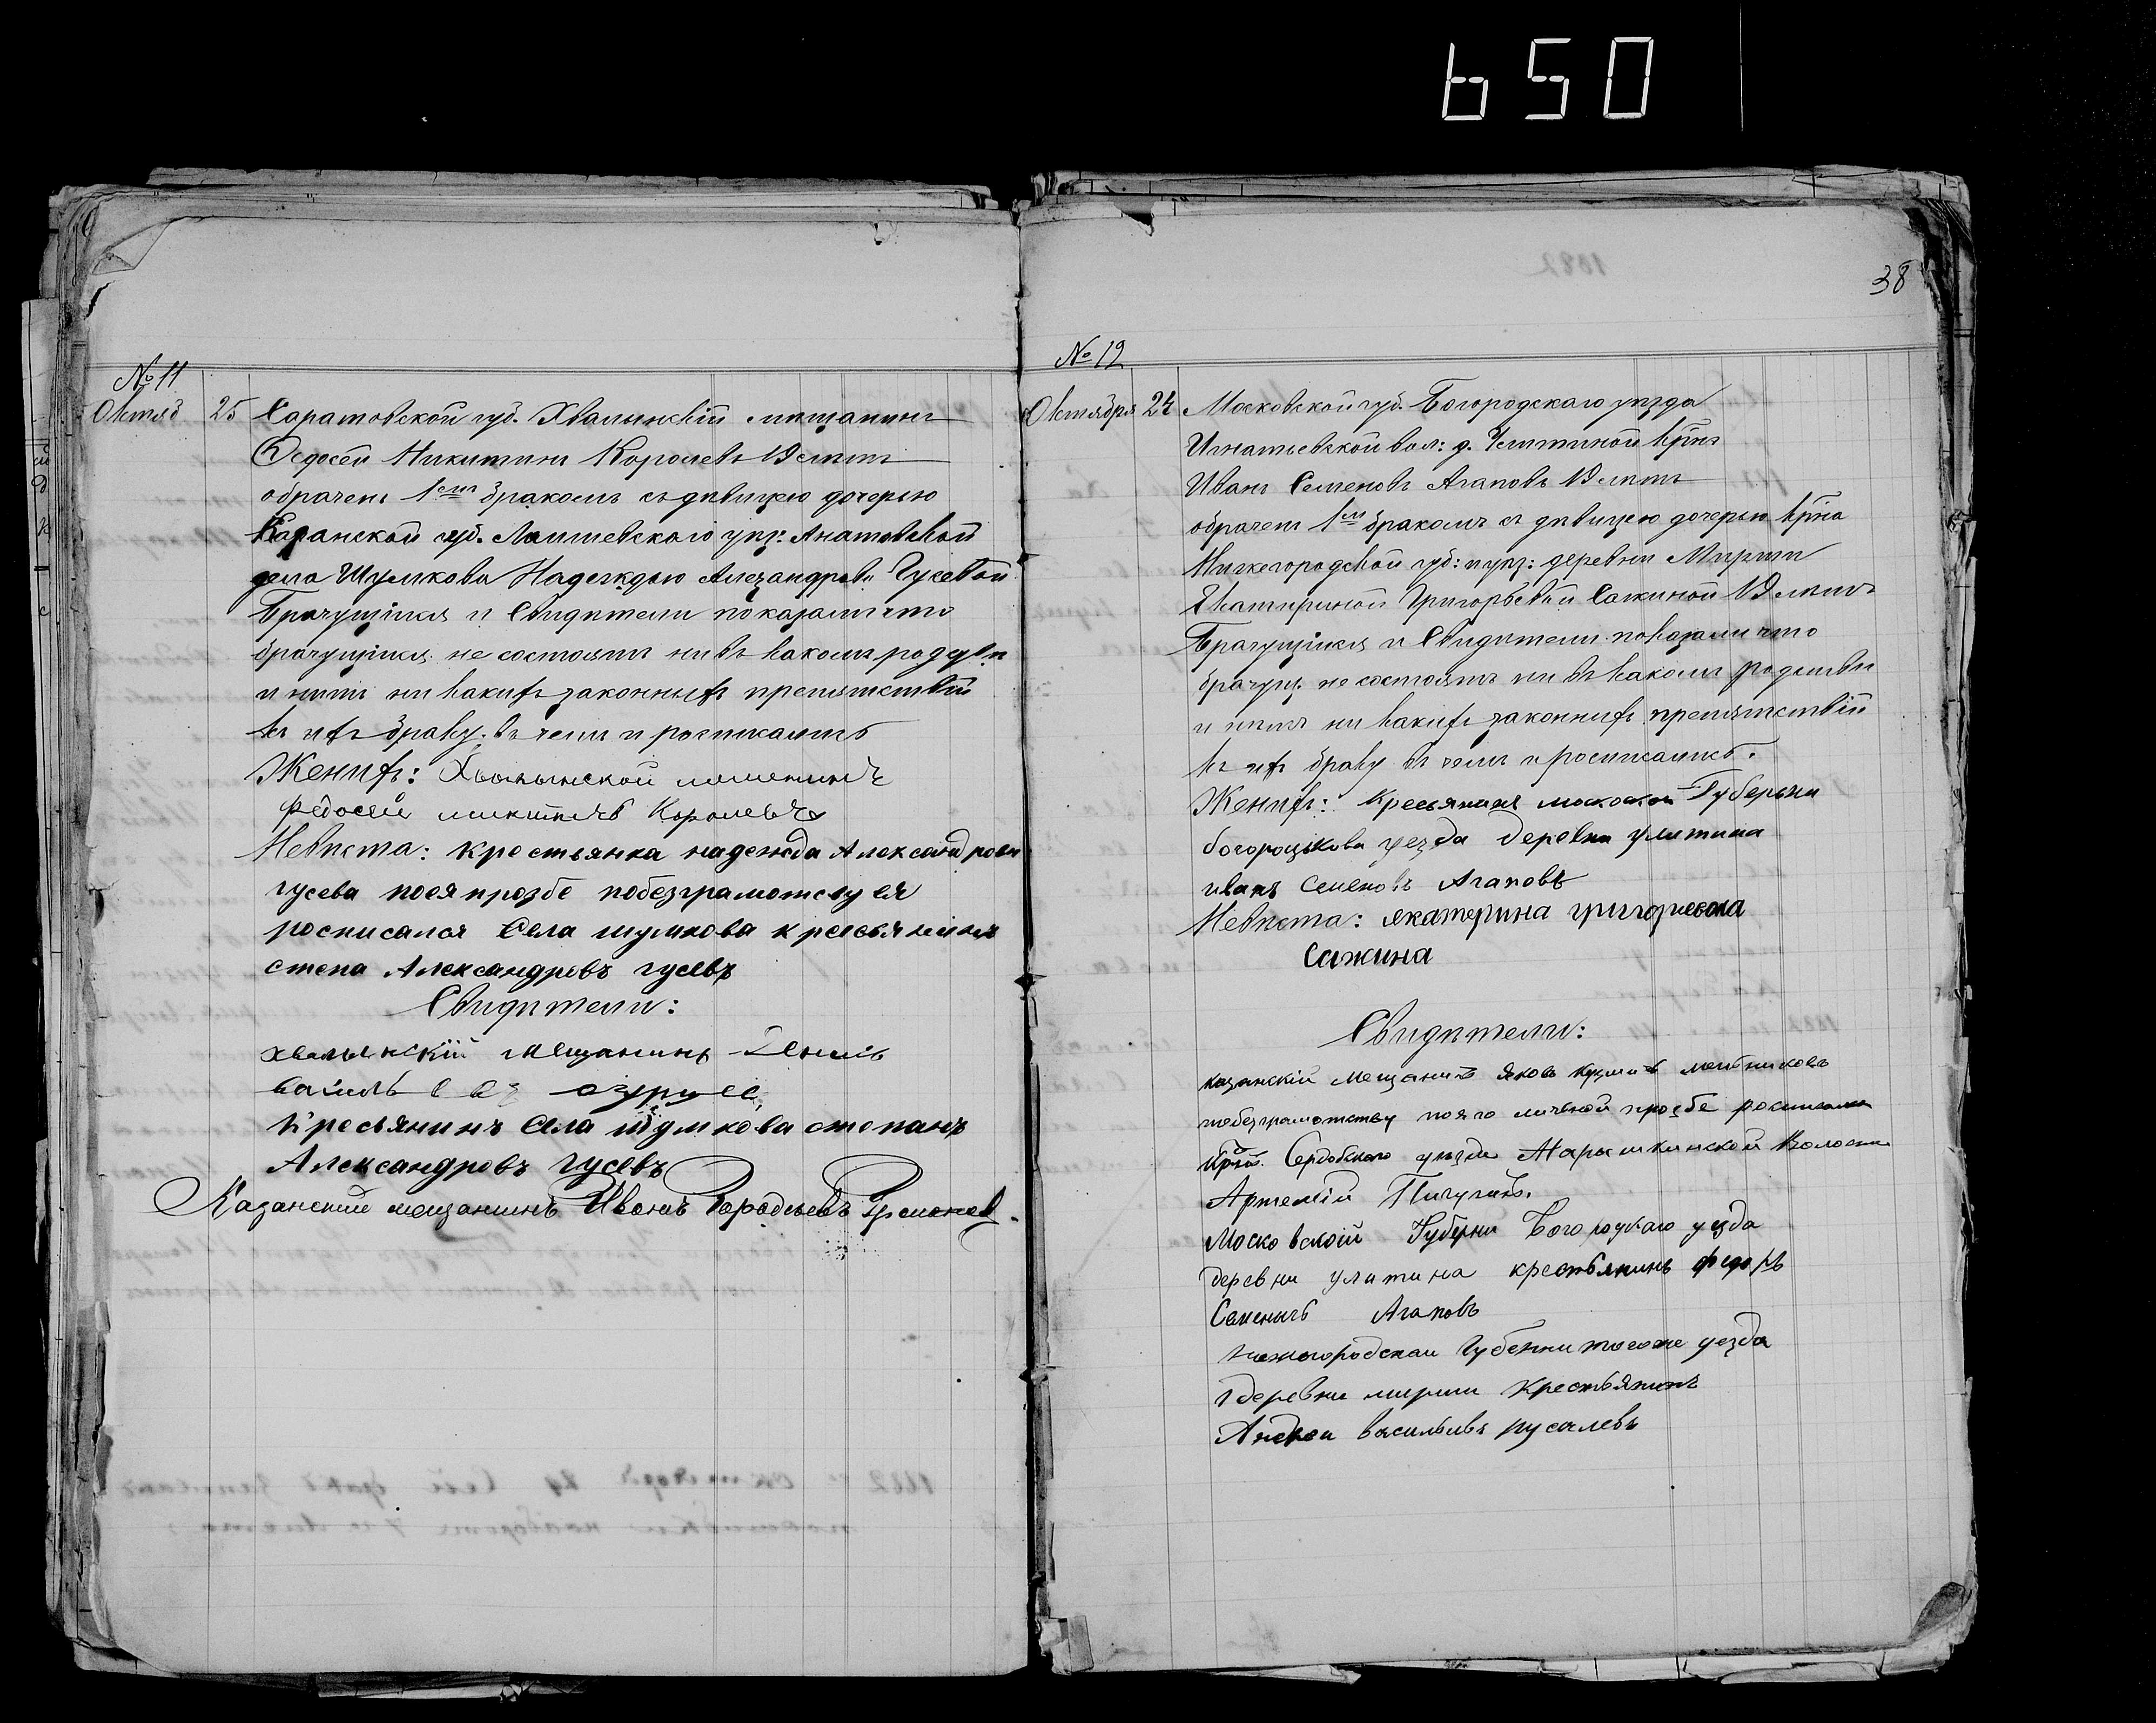 650
38
№ 11
Октяб 25 Саратовской губ. Хвалынскій мѣщанинъ
Ѳедосей Никитинъ Королевъ 19 лѣтъ
обрачен 1емъ бракомъ съ дѣвицею дочерью
Казанской губ. Лаишевскаго уѣз: Анатовской
села Шумкова Надеждою Алезандров. Гусевой
Брачущіися и Свидѣтели показали что
брачущіися не состоятъ ни въ какомъ родств.
и нѣтъ ни какихъ законныхъ препятствій
къ ихъ браку, въ чемъ и росписались
Женихъ: Хвалынской
Федосей Королевъ
Невѣста: крестьянка надежда Александрови
гусева поея прозбе побезграмотсву ея
росписался Села шумкова кресьянинъ
степа Александровъ гусевъ
Свидѣтели:
хвалынскій мещанинъ
кресьянинъ села шумкова степанъ
Александровъ гусевъ
Казанский мещанинъ Иванъ
№ 12
Октября 24 Московской губ. Богородскаго уѣзда
Игнатьевской вол: д. Улитиной крнъ
Иванъ Семеновъ Агаповъ 19 лѣтъ
обрачен 1м бракомъ съ дѣвицею дочерью крна
Нижегородской губ: и уѣз: деревни Мирѣши
Екатериной Григорьевой Сажиной 19 лѣтъ
Брачущіися и Свидѣтели показали что
брачущ. не состоятъ ни въ какомъ родствѣ
и нѣтъ ни какихъ законныхъ препятствій
къ ихъ браку въ чемъ и росписались.
Женихъ: Кресьянинъ москоской Губерьни
богороцкова уезда Деревни улитина
иванъ Семеновъ Агаповъ
Невѣста: екатерина григориевона
Сажина
Свидѣтели:
казанскій мещанинъ Яковъ Кузмичъ
побезграмотству поего личной прозбе росписался
Сердобскаго уѣзда Нарышкинской Волости
Артемій Пичугинъ.
Московской Губерни Богородкаго уезда
деревни улитина крестьянинъ федоръ
Семенычъ Агаповъ
Нежегородскаи Губенни тогоже уезда
деревни мирши Крестьянинъ
Андреи васильивъ русалевъ